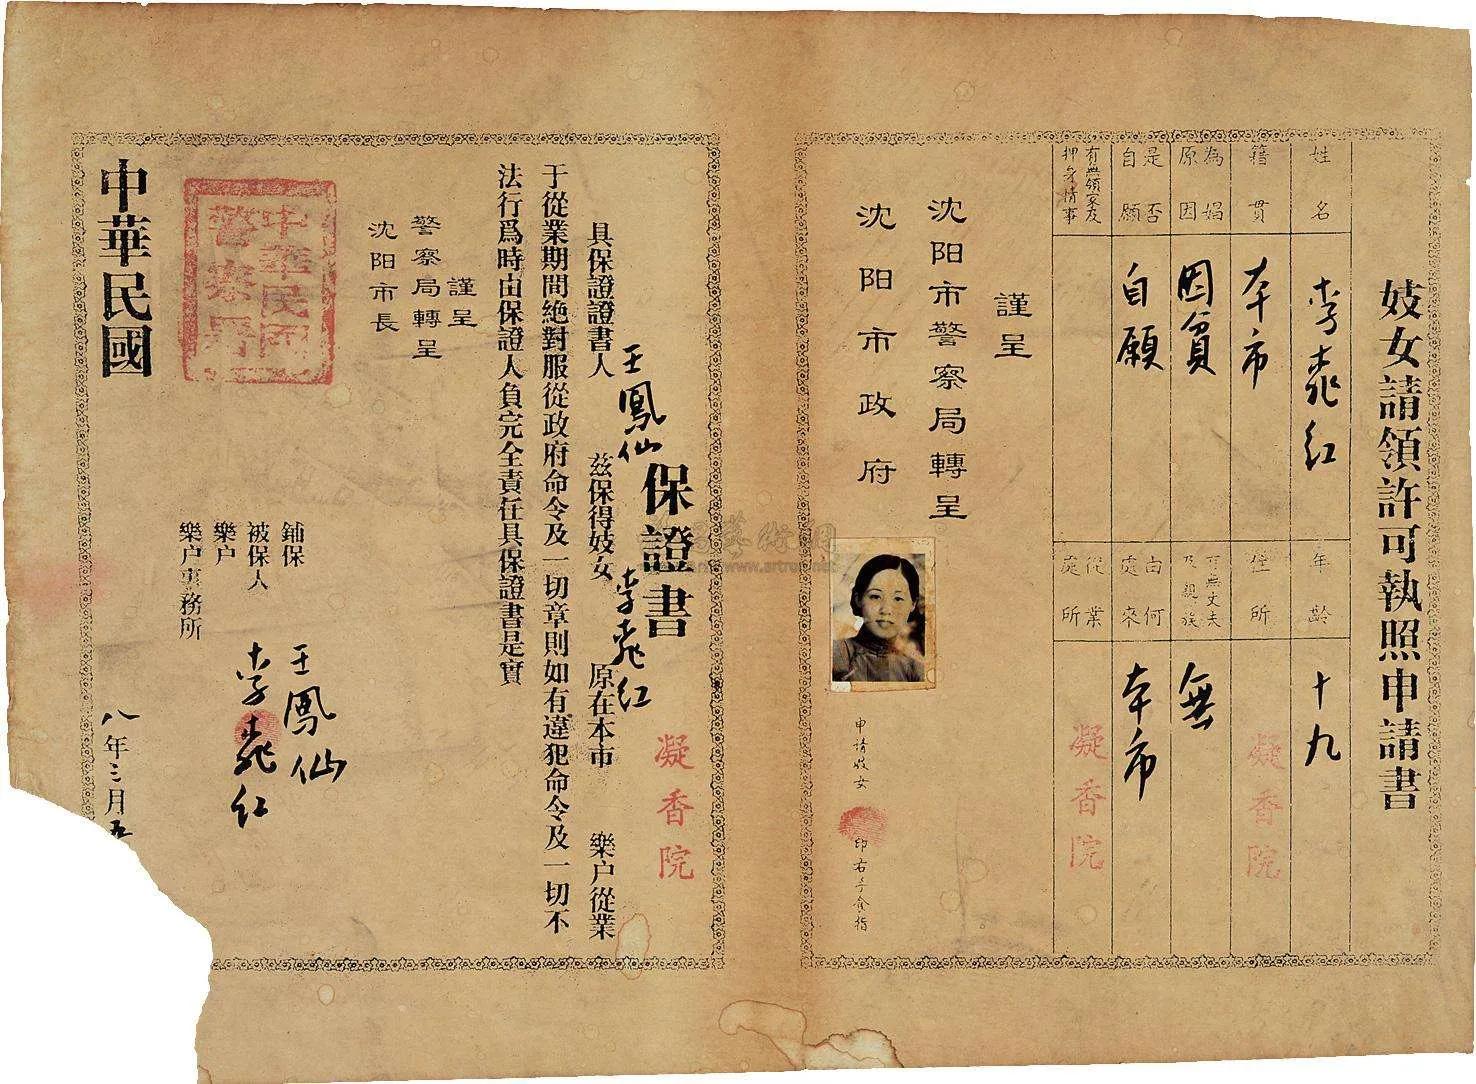 妓女請領許可執照申請書
姓名
李燕红
年齡
十九
籍貫
本市
住所
凝香院
為娼原因
因貧
有無丈夫及親族
無
是否自願
自願
由何處來
本市
有無領家及押身情事
從業處所
凝香院
謹呈
沈阳市警察局轉呈
沈阳市政府
申請妓女
印右手食指
保證書
凝香院
具保證證書人 王鳳仙 兹保得妓女 李燕红 原在本市 樂户從業
于從業期間絶對服從政府命令及一切章則如有違犯命令及一切不
法行爲時由保證人負完全責任具保證書是實
謹呈
警察局轉呈
沈阳市長
鋪保 王鳳仙
被保人 李燕红
樂户
樂户事務所
中華民國
警察局
中華民國 八年三月五